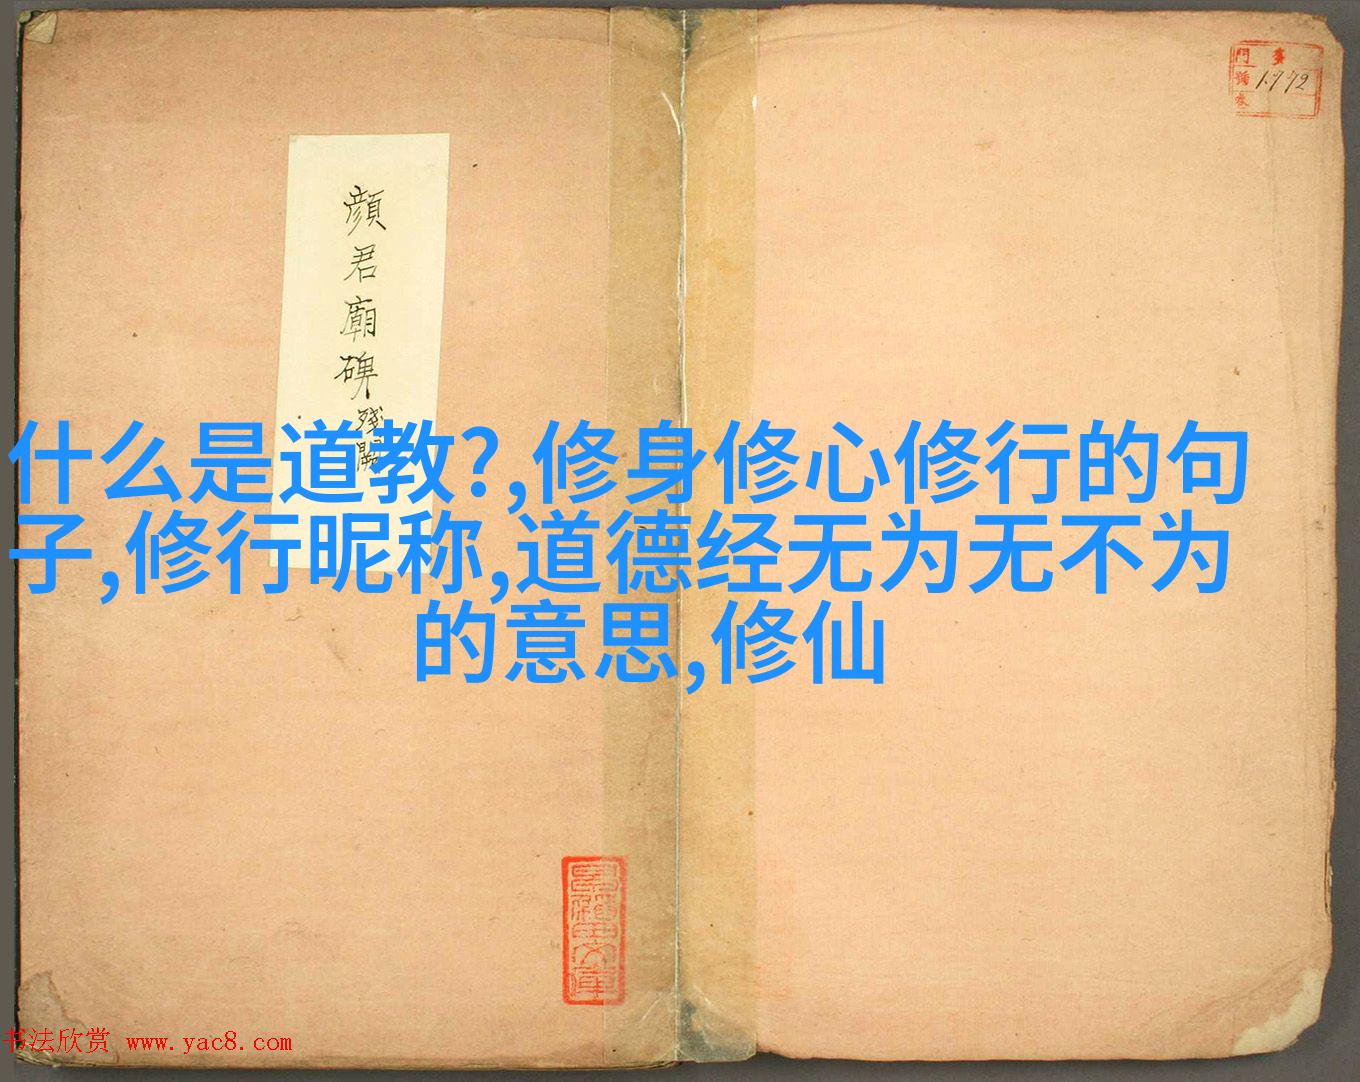 門 番
號 1772
卷
顔君廟碑殘闕
什么是道教?,修身修心修行的句
子,修行昵称,道德经无为无不为
的意思,修仙
书法欣赏 www.yac8.com